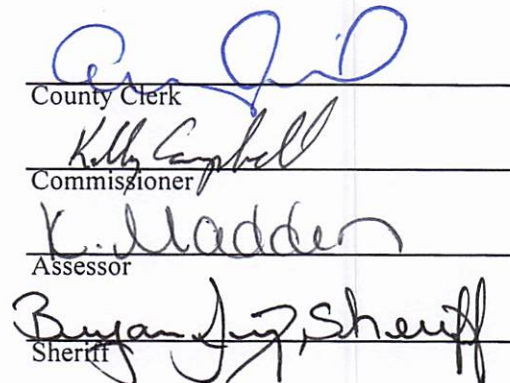 County Clerk
Kelly Campbell
Commissioner
K. Madden
Assessor
Bryan , Sheriff
Sheriff